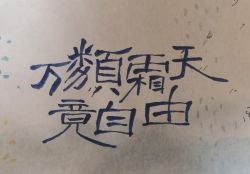 万類霜天
竟自由